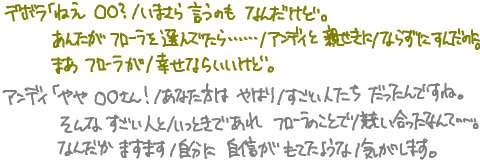 デボラ「ねえ 〇〇?/いまさら 言うのも なんだけど。
あんたが フローラを 選んでたら……/アンディと 親せきに/ならずにすんだのに。
まあ フローラが/幸せならいいけど。
アンディ「やや 〇〇さん!/あなた方は やはり/すごい人たち だったんですね。
そんな すごい人と/いっときであれ フローラのことで/競い合ったなんて……。
なんだか ますます/自分に 自信が もてたような/気がします。